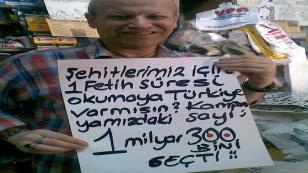 Şehitlerimiz için
1 Fetih Süresi
okumaya Türkiye
varmısın? Kampan
yamızdaki sayı,
1 milyar 300
BİNİ
GEÇTİ!!